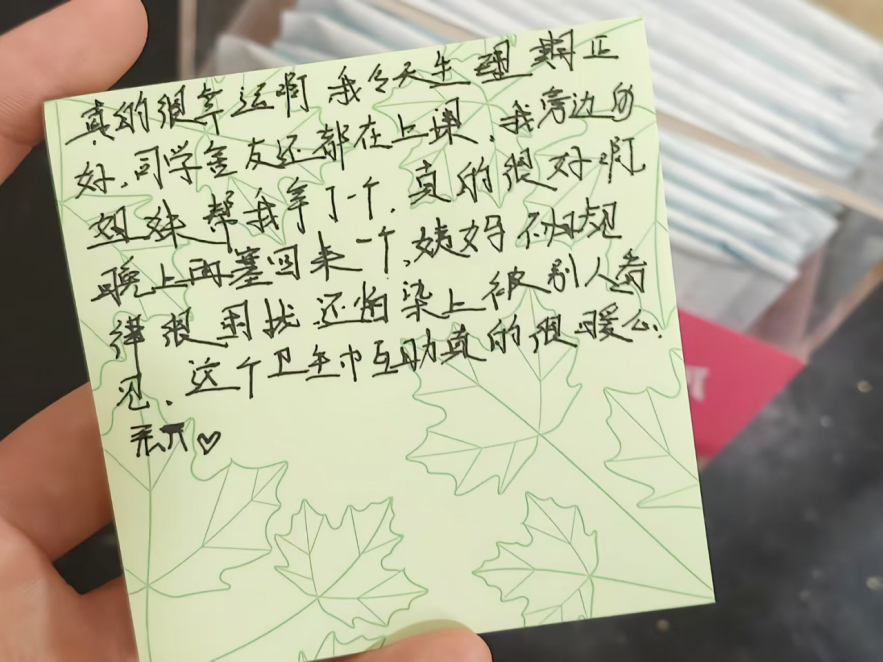 真的很幸运啊 我今天生理期正
好,同学室友还都在上课,我旁边的
姐妹帮我拿了一个,真的很好啊
晚上再塞回来一个,姨妈不规
律很困扰 还怕染上被别人看
见,这个卫生巾互助真的很暖心